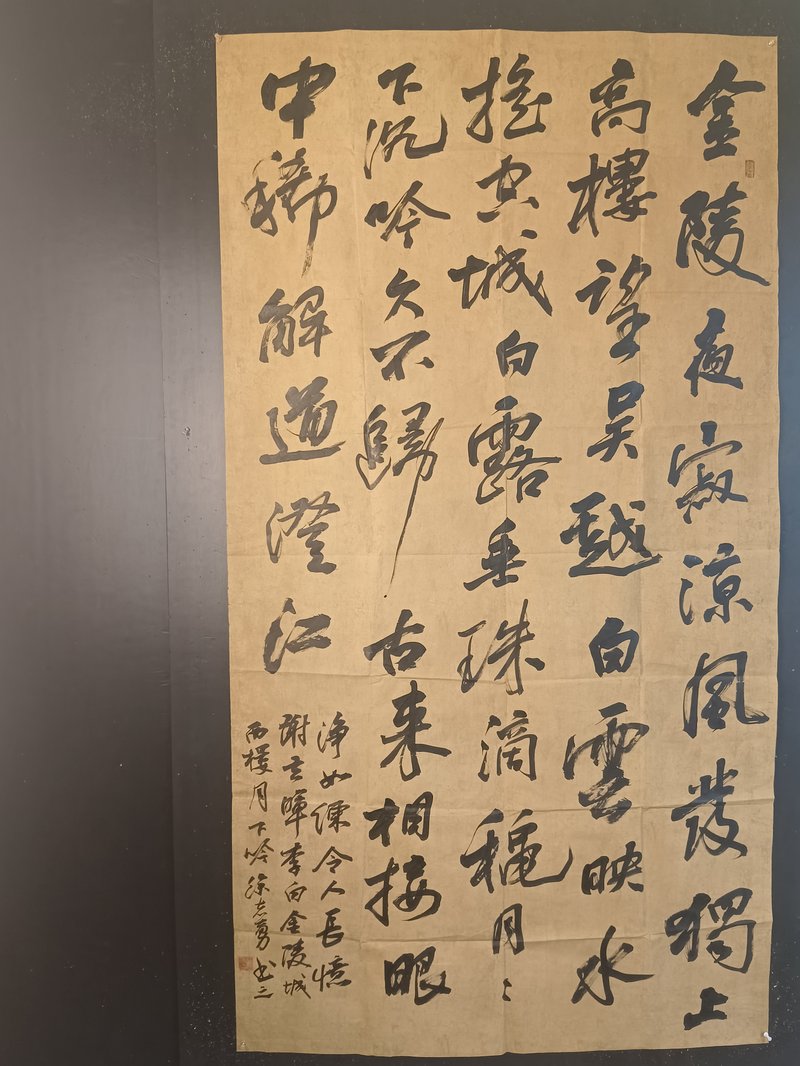 金陵夜寂涼風發獨上
高樓望吳越白雲映水
搖空城白露垂珠滴穐月〻
下沉吟久不歸古来相接眼
中稀解道澄江
淨如練令人長憶
謝玄暉李白金陵城
西樓月下吟徐志勇書之